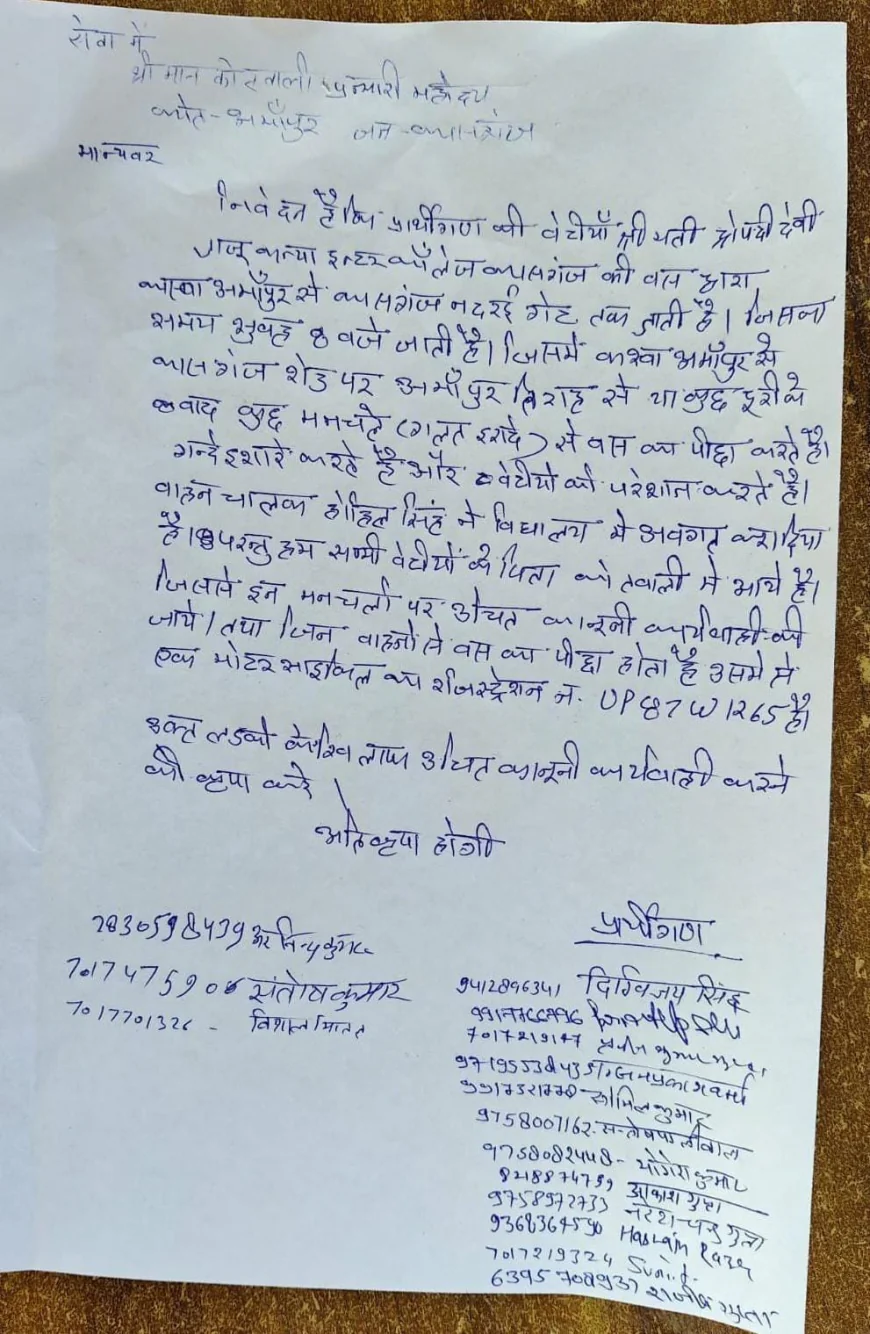 सेवा में
श्री मान कोतवाली प्रभारी महोदय
कोत-अमाँपुर जन-कासगंज
मान्यवर
निवेदन है कि प्रार्थीगण की वेटीयाँ श्री मती द्रोपदी देवी
जाजू कन्या इन्टर कॉलेज कासगंज की वस द्वारा
कास्वा अमाँपुर से कासगंज नदरई गेट तक जाती है। जिसका
समय सुवह 8 वजे जाती है। जिसमें कस्वा अमाँपुर से
कासगंज रोड पर अमाँपुर तिराह से या कुछ दूरी के
वाद कुछ मनचले (गलत इरादे) से वस का पीछा करते है।
गन्दे इशारे करते है और वेटीयो को परेशान करते है।
वाहन चालक सिंह ने विघालय मे अवगत करा दिया
है। परन्तु हम सभी वेटीयों के पिता कोतवाली मे आये है।
जिससे इन मनचलो पर उचित कानूनी कार्यवाही की
जाये। तथा जिन वाहनो से वस का पीछा होता है उसमे से
एक मोटर साइकिल का रजिस्ट्रेशन न. UP87W1265 है।
उक्त लडको के खिलाफ उचित कानूनी कार्यवाही करने
की कृपा करे।
अति कृपा होगी
प्रार्थीगण
7830598439
7017475906 संतोष कुमार
7017701326 - विशाल मित्तल
9412896341 दिग्विजय सिंह
7017219147
सोमिल कुमार
9758007162. सन्तोष पालीवाल
9758082448 - योगेश कुमार
8218874759 आकाश गुप्ता
9758972733 नरेश चन्द्र गुप्ता
9368364590 Haslain Raza
7017219324 Sunil.
6395708937 राजीव गुप्ता